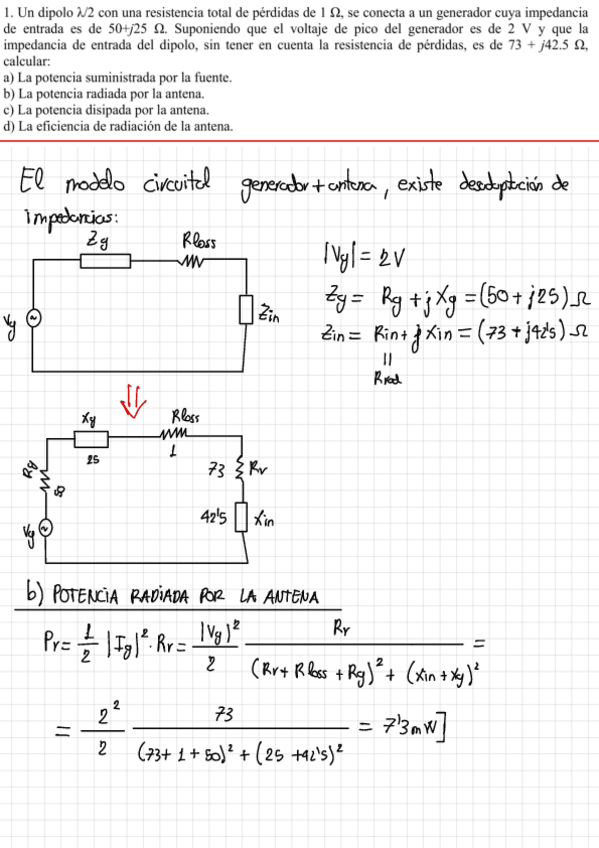 1. Un dipolo λ/2 con una resistencia total de pérdidas de 1 Ω, se conecta a un generador cuya impedancia
de entrada es de 50+j25 Ω. Suponiendo que el voltaje de pico del generador es de 2 V y que la
impedancia de entrada del dipolo, sin tener en cuenta la resistencia de pérdidas, es de 73 + j42.5 Ω,
calcular:
a) La potencia suministrada por la fuente.
b) La potencia radiada por la antena.
c) La potencia disipada por la antena.
d) La eficiencia de radiación de la antena.
El modelo circuital generador + antena, existe desadaptación de
impedancias:
Zg Rloss
Vg Zin
|Vg| = 2V
Zg = Rg + jXg = (50 + j25) Ω
Zin = Rin + jXin = (73 + j42's) Ω
||
Rrad
Xg Rloss
25 1
Rg 50 73 Rr
Vg 42's Xin
b) POTENCIA RADIADA POR LA ANTENA
Pr = 1/2 |Ig|² · Rr = |Vg|²/2 Rr/((Rr + Rloss + Rg)² + (Xin + Xg)²) =
= 2²/2 73/((73 + 1 + 50)² + (25 + 42's)²) = 7'3 mW]